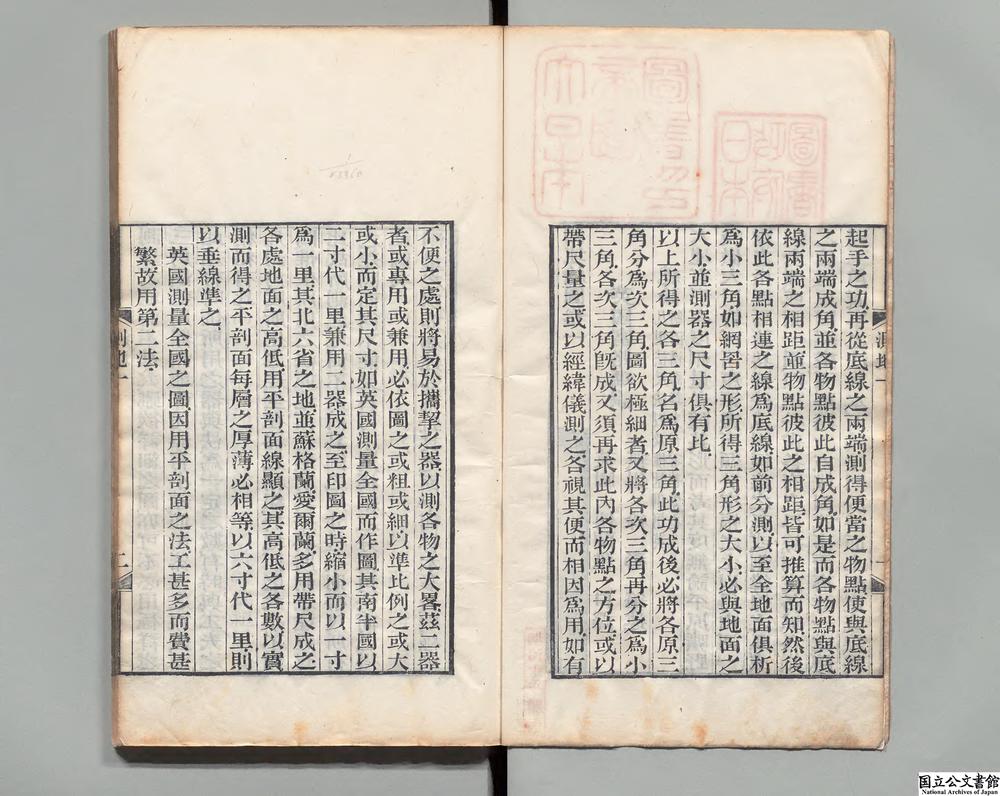 起手之功再從底線之兩端測得便當之物點使與底線
之兩端成角並各物點彼此自成角如是而各物點與底
線兩端之相距並物點彼此之相距皆可推算而知然後
依此各點相連之線爲底線如前分測以至全地面俱析
爲小三角如網罟之形所得三角形之大小必與地面之
大小並測器之尺寸俱有比
以上所得之各三角名爲原三角此功成後必將各原三
角分爲次三角圖欲極細者又將各次三角再分之爲小
三角各次三角旣成又須再求此內各物點之方位或以
帶尺量之或以經緯儀測之各視其便而相因爲用如有
不便之處則將易於攜挈之器以測各物之大畧茲二器
者或專用或兼用必依圖之或粗或細以準比例之或大
或小而定其尺寸如英國測量全國而作圖其南半國以
二寸代一里兼用二器成之至印圖之時縮小而以一寸
爲一里其北六省之地並蘇格蘭愛爾蘭多用帶尺成之
各處地面之高低用平剖面線顯之其高低之各數以實
測而得之平剖面每層之厚薄必相等以六寸代一里則
以垂線準之
英國測量全國之圖因用平剖面之法工甚多而費甚
繁故用第二法
測地一
二
圖書局
日本
国立公文書館
National Archives of Japan